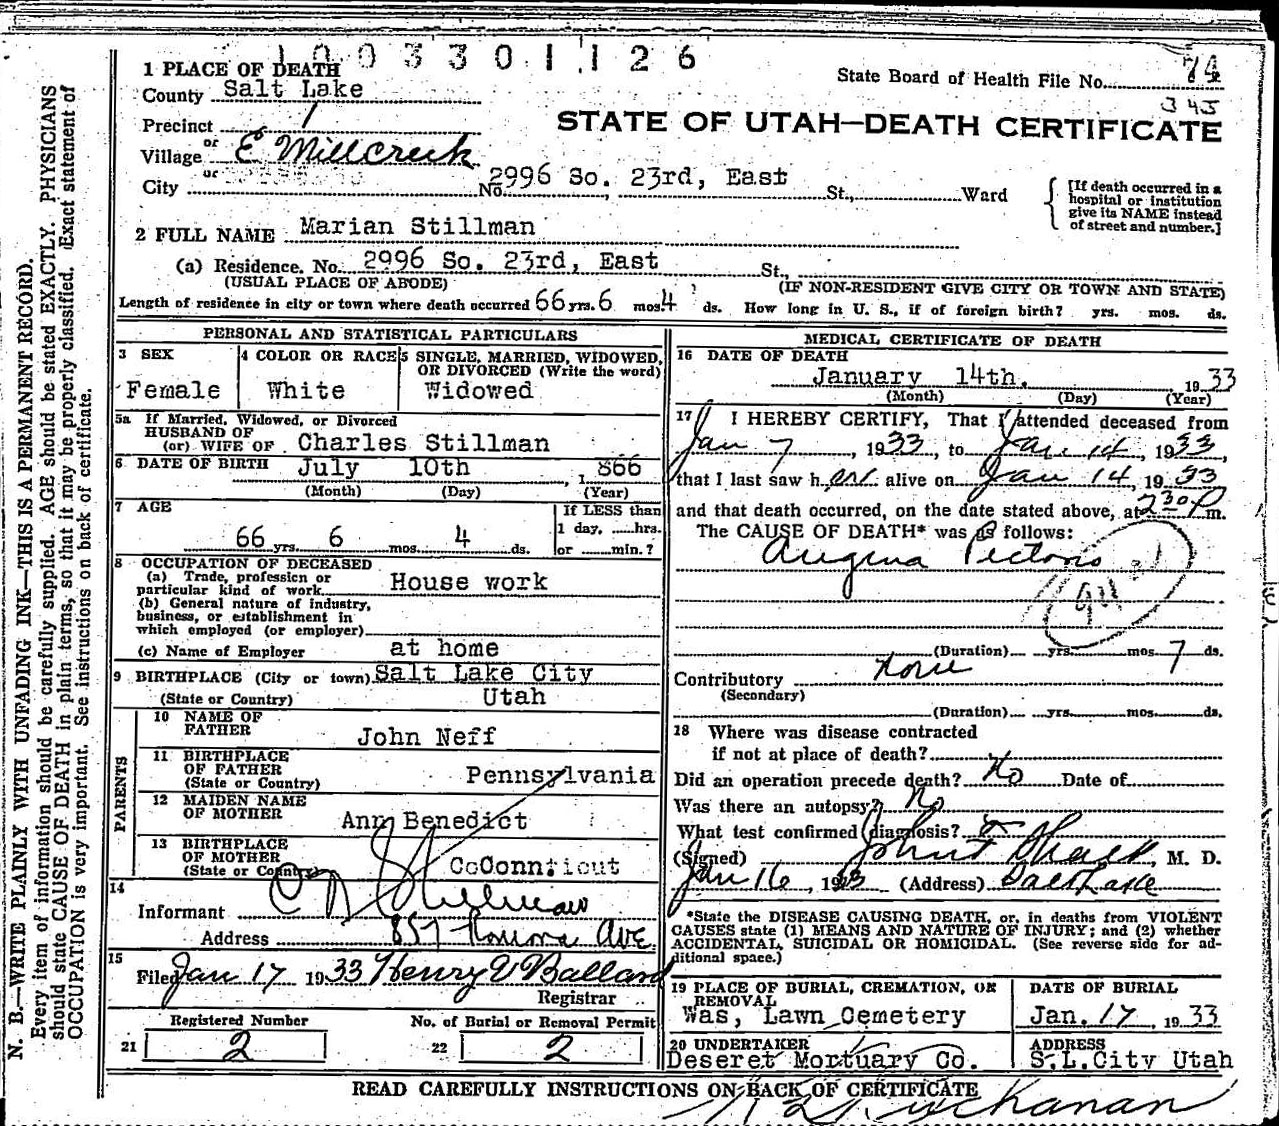 1003301126
1 PLACE OF DEATH
State Board of Health File No. 74
County Salt Lake
345
Precinct 1
STATE OF UTAH—DEATH CERTIFICATE
Village or E Millcreek
City or No. 2996 So. 23rd, East St., Ward
[If death occurred in a hospital or institution give its NAME instead of street and number.]
2 FULL NAME Marian Stillman
(a) Residence. No. 2996 So. 23rd, East St.,
(USUAL PLACE OF ABODE) (IF NON-RESIDENT GIVE CITY OR TOWN AND STATE)
Length of residence in city or town where death occurred 66 yrs. 6 mos. 4 ds. How long in U. S., if of foreign birth? yrs. mos. ds.
PERSONAL AND STATISTICAL PARTICULARS
3 SEX 4 COLOR OR RACE 5 SINGLE, MARRIED, WIDOWED, OR DIVORCED (Write the word)
Female White Widowed
5a If Married, Widowed, or Divorced
HUSBAND OF
(or) WIFE OF Charles Stillman
6 DATE OF BIRTH July 10th, 1866
(Month) (Day) (Year)
7 AGE If LESS than
66 yrs. 6 mos. 4 ds. 1 day, hrs. or min.?
8 OCCUPATION OF DECEASED
(a) Trade, profession or
particular kind of work House work
(b) General nature of industry,
business, or establishment in
which employed (or employer)
(c) Name of Employer at home
9 BIRTHPLACE (City or town) Salt Lake City
(State or Country) Utah
PARENTS
10 NAME OF FATHER John Neff
11 BIRTHPLACE OF FATHER (State or Country) Pennsylvania
12 MAIDEN NAME OF MOTHER Ann Benedict
13 BIRTHPLACE OF MOTHER (State or Country) CoConnticut
14
Informant C N Stillman
Address 857 Ave.
15
Filed Jan 17 1933 Henry V Ballard
Registrar
Registered Number No. of Burial or Removal Permit
21 2 22 2
MEDICAL CERTIFICATE OF DEATH
16 DATE OF DEATH
January 14th. 1933
(Month) (Day) (Year)
17 I HEREBY CERTIFY, That I attended deceased from
Jan 7, 1933, to Jan. 14, 1933,
that I last saw her alive on Jan 14, 1933
and that death occurred, on the date stated above, at 2 30 P m.
The CAUSE OF DEATH* was as follows:
Angina Pectoris
94
(Duration) yrs. mos. 7 ds.
Contributory None
(Secondary)
(Duration) yrs. mos. ds.
18 Where was disease contracted
if not at place of death?
Did an operation precede death? No Date of
Was there an autopsy? No
What test confirmed diagnosis?
(Signed) M. D.
Jan 16, 1933 (Address) Salt Lake
*State the DISEASE CAUSING DEATH, or, in deaths from VIOLENT
CAUSES state (1) MEANS AND NATURE OF INJURY; and (2) whether
ACCIDENTAL, SUICIDAL OR HOMICIDAL. (See reverse side for ad-
ditional space.)
19 PLACE OF BURIAL, CREMATION, OR REMOVAL DATE OF BURIAL
Was, Lawn Cemetery Jan. 17, 1933
20 UNDERTAKER ADDRESS
Deseret Mortuary Co. S.L.City Utah
READ CAREFULLY INSTRUCTIONS ON BACK OF CERTIFICATE
Buchanan
N. B.—WRITE PLAINLY WITH UNFADING INK—THIS IS A PERMANENT RECORD.
Every item of information should be carefully supplied. AGE should be stated EXACTLY. PHYSICIANS
should state CAUSE OF DEATH in plain terms, so that it may be properly classified. Exact statement of
OCCUPATION is very important. See instructions on back of certificate.